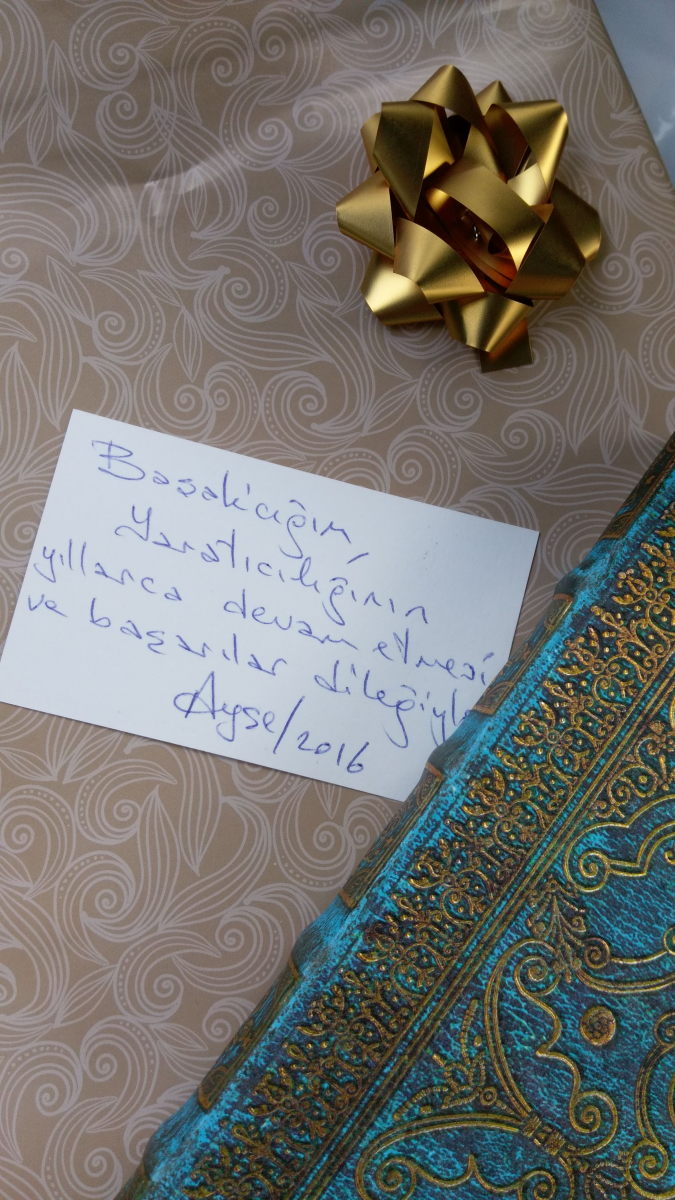 Başakcığım,
Yaratıcılığının
yıllarca devam etmesi
ve başarılar dileğiyle
Ayşe/2016